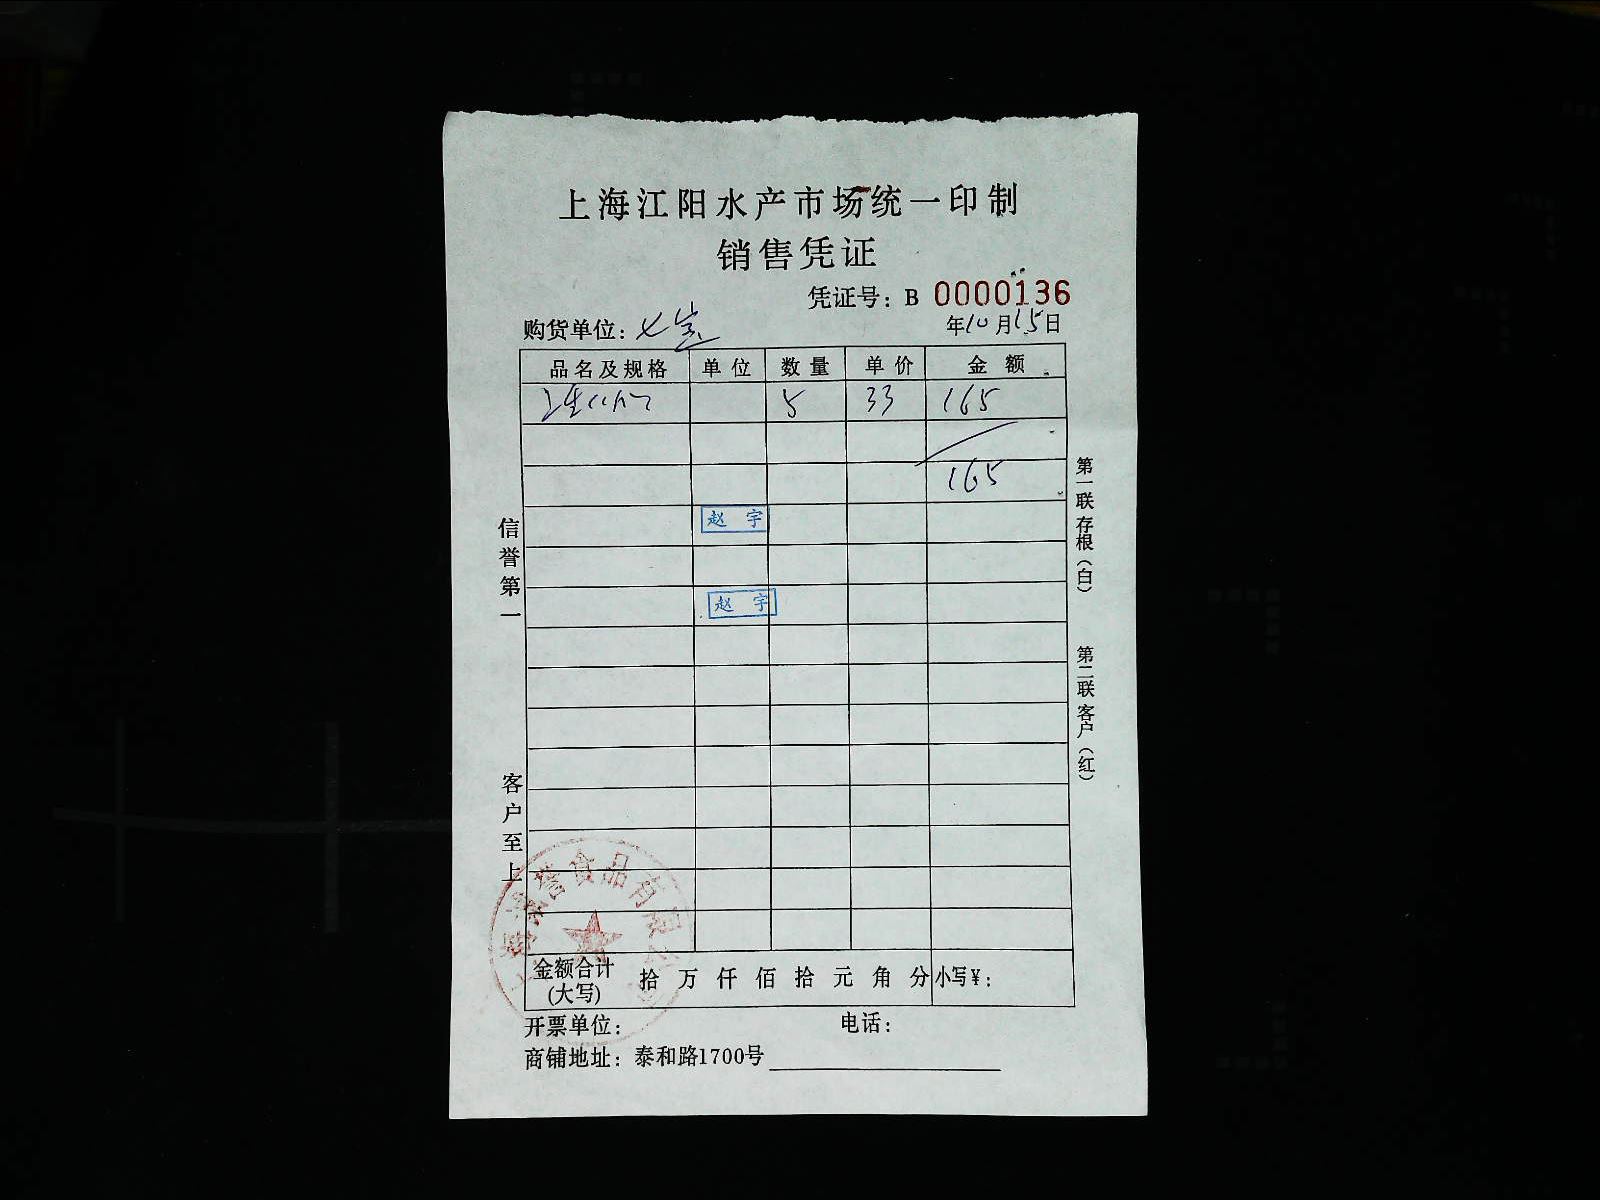 上海江阳水产市场统一印制
销售凭证
凭证号：B 0000136
购货单位：七宝 年10月15日
品名及规格 单位 数量 单价 金额
5 33 165
165
赵宇
赵宇
信誉第一
客户至上
第一联存根（白）
第二联客户（红）
金额合计(大写) 拾 万 仟 佰 拾 元 角 分 小写¥：
开票单位： 电话：
商铺地址：泰和路1700号
誉食品有限